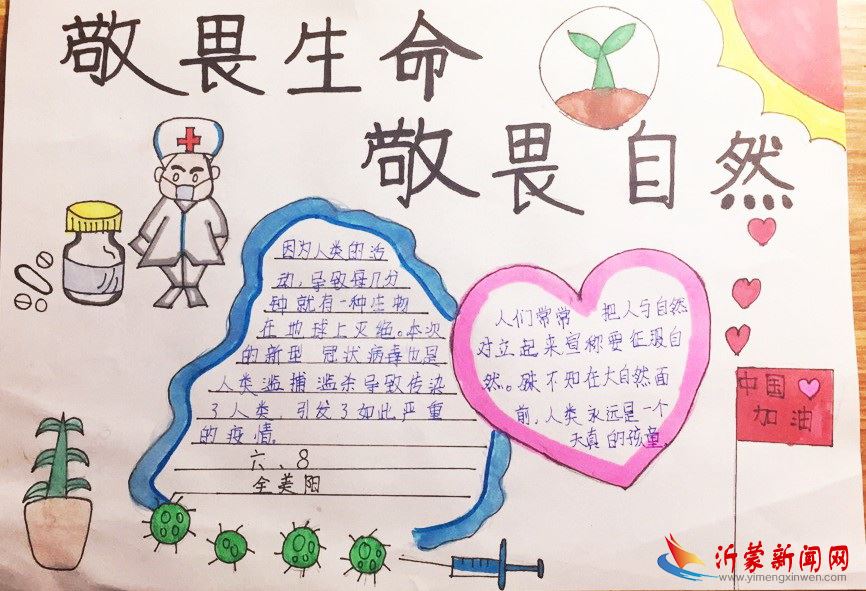 敬畏生命
敬畏自然
因为人类的活
动，导致每几分
钟就有一种生物
在地球上灭绝。本次
的新型 冠状病毒也是
人类滥捕滥杀导致传染
了人类，引发了如此严重
的疫情。
六、8
全美阳
人们常常 把人与自然
对立起来宣称要征服自
然。殊不知在大自然面
前，人类永远是一个
天真的孩童。
中国
加油
沂蒙新闻网
www.yimengxinwen.com